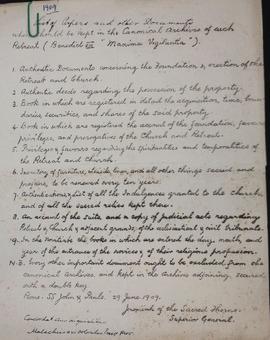 1909
List of Papers and other Documents
which should be kept in the Canonical Archives of each
Retreat (Benedict XIII "Maxima Vigilantia").
1. Authentic Documents concerning the Foundation & erection of the
Retreat and Church.
2. Authentic deeds regarding the possession of the property.
3. Book in which are registered in detail the acquisition, time, boun-
daries, securities, and shares of the said property.
4. Book in which are registered the account of the foundation, favours
privileges, and prerogatives of the Church and Retreat.
5. Privileges & favors regarding the spiritualities and temporalities of
the Retreat and Church.
6. Inventory of furniture, utensils, linen, and all other things sacred and
profane, to be renewed every ten years.
7. Authentic and list of all the Indulgences granted to the Church,
and of all the sacred relics kept there.
8. An account of the suits, and a copy of judicial acts regarding
Retreat & Church & adjacent grounds, of the ecclesiastical & civil tribunals.
9. In the novitiate the books in which are entered the day, month, and
year of the entrance of the novices, & of their religious profession.
N.B. Every other important document ought to be excluded from the
canonical archives, and kept in the archives adjoining, secured
with a double key
Rome. SS John & Paul's. 29 June 1909.
Jeremiah of the Sacred Thorns.
Superior General.
Concordat cum originali